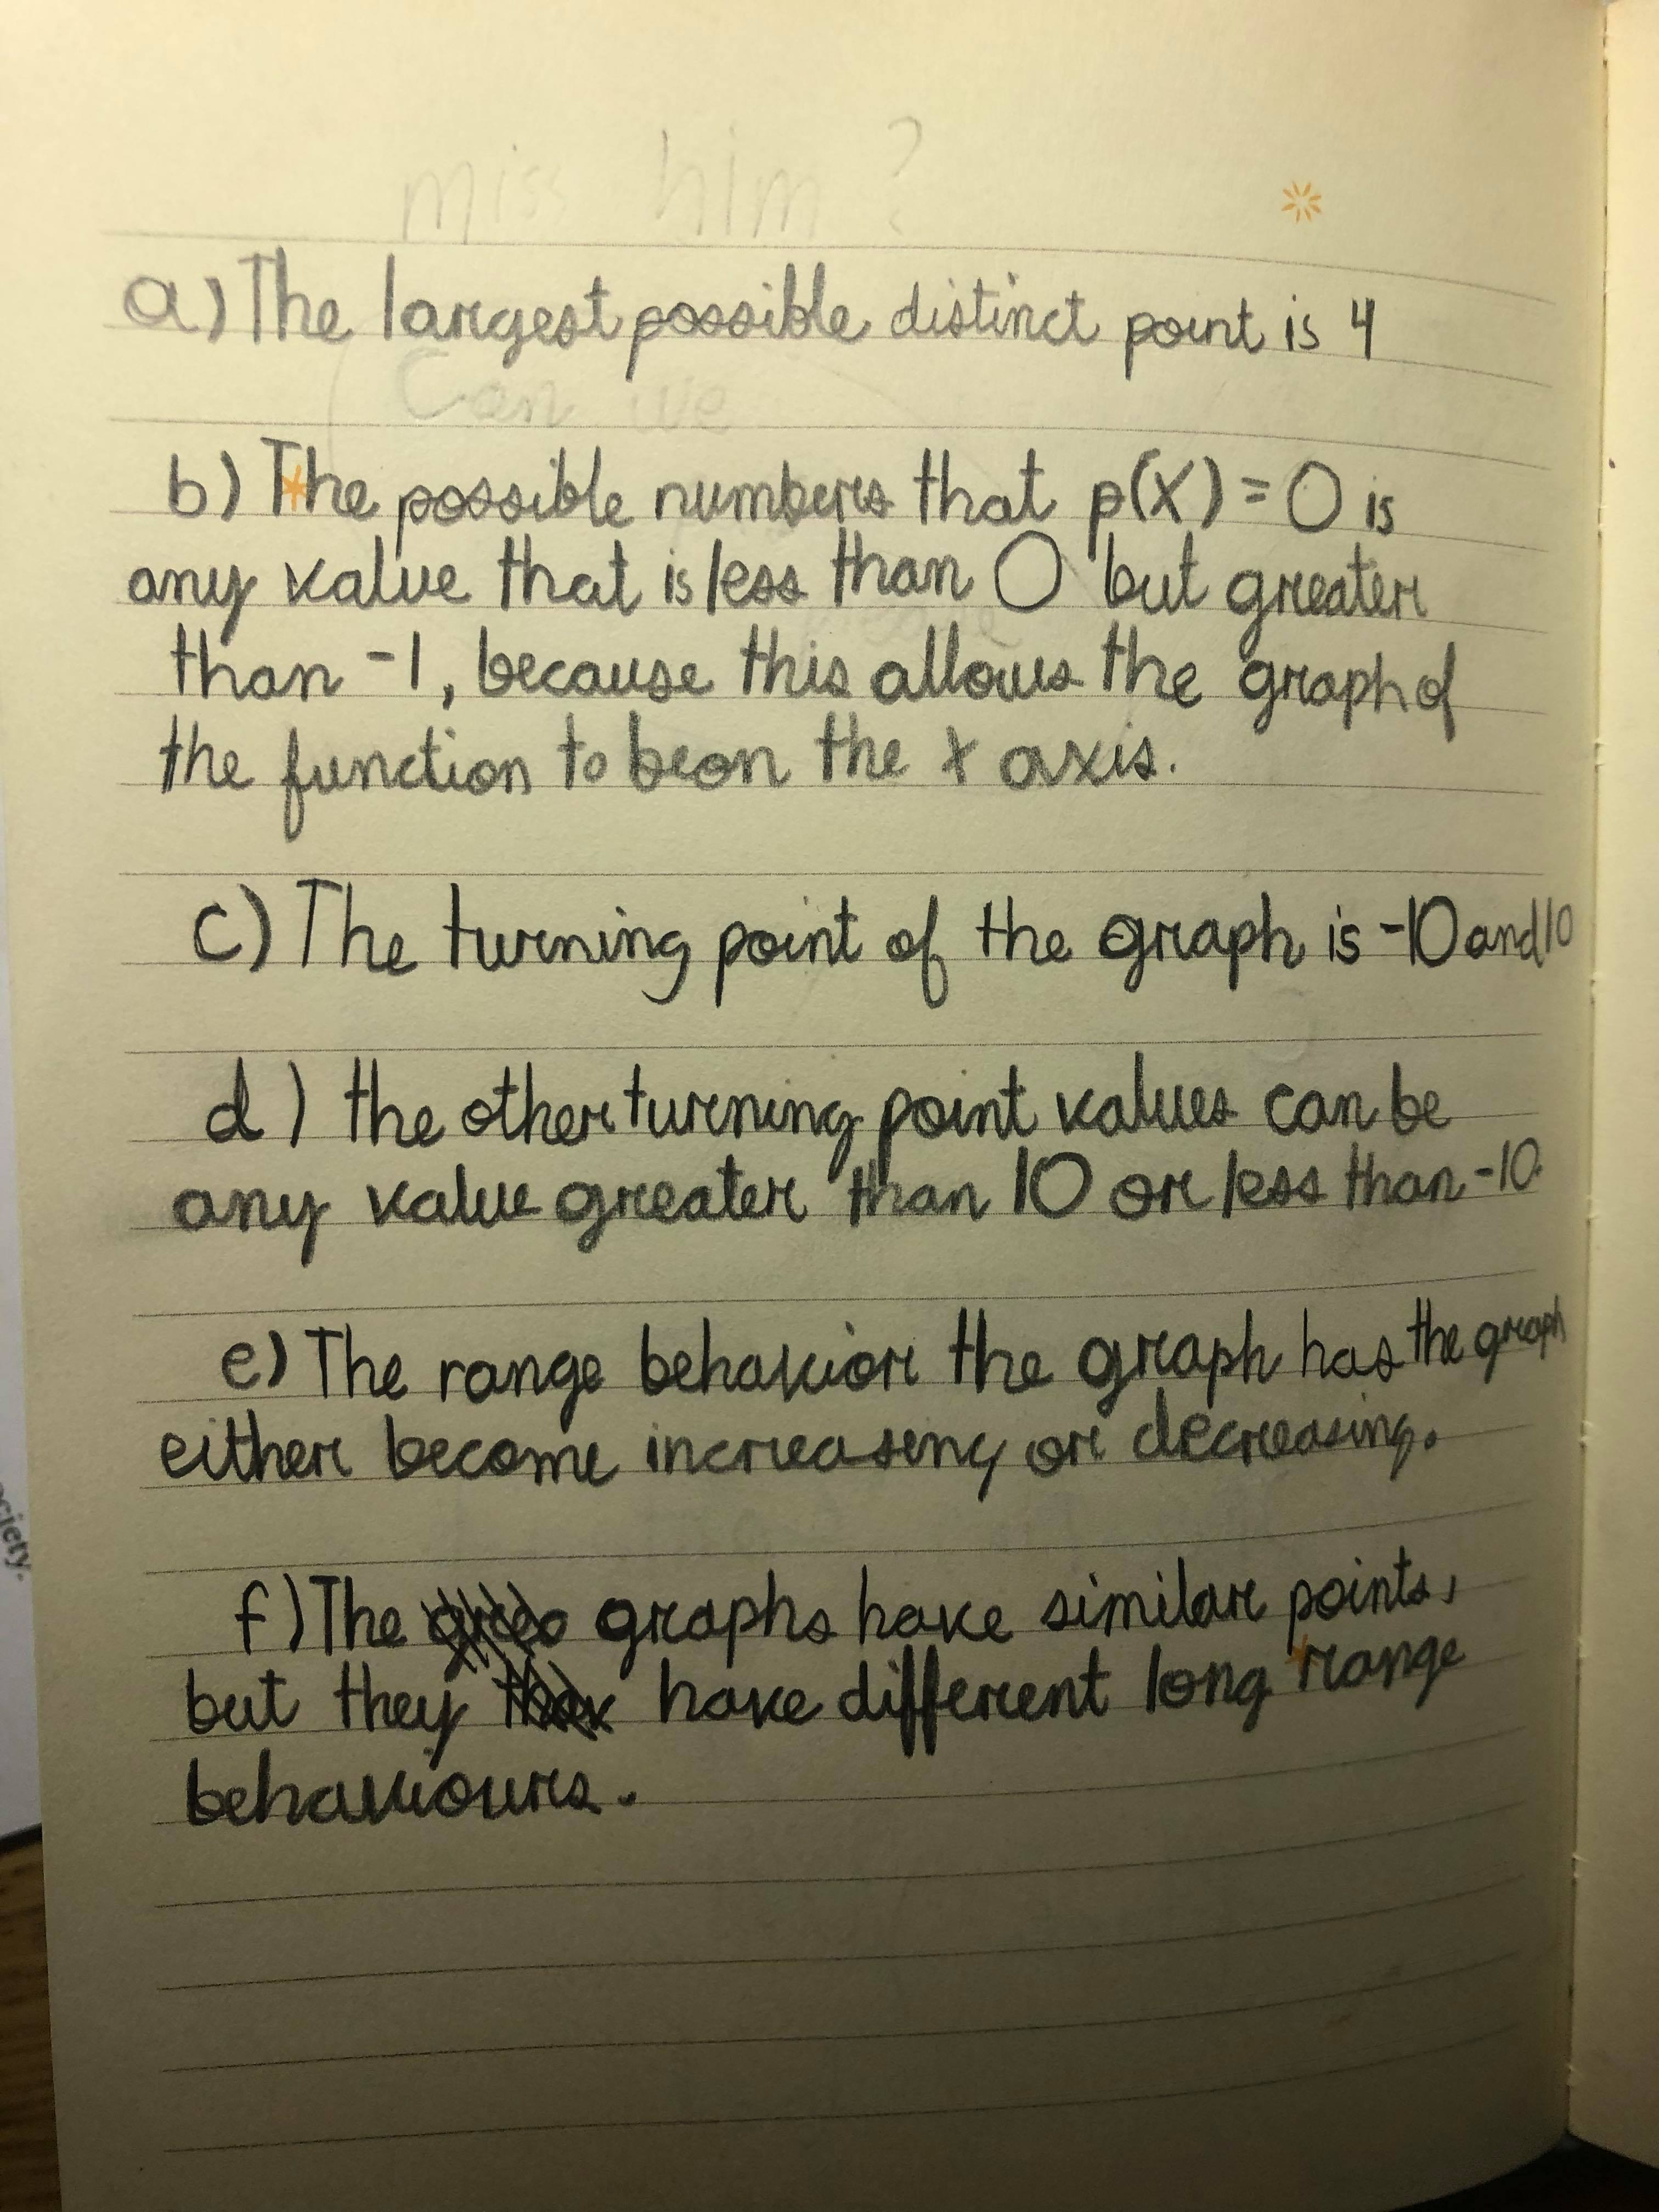 miss him ?
a) The largest possible distinct point is 4
Can we
b) The possible numbers that p(x) = 0 is
any value that is less than 0 but greater
than -1, because this allows the graph of
the function to be on the x axis.
c) The turning point of the graph is -10 and 10
d) the other turning point values can be
any value greater than 10 or less than -10.
e) The range behavior the graph has the graph
either become increaseing or decreasing.
f) The graphs have similar points,
but they have different long range
behaviours.
ciety.